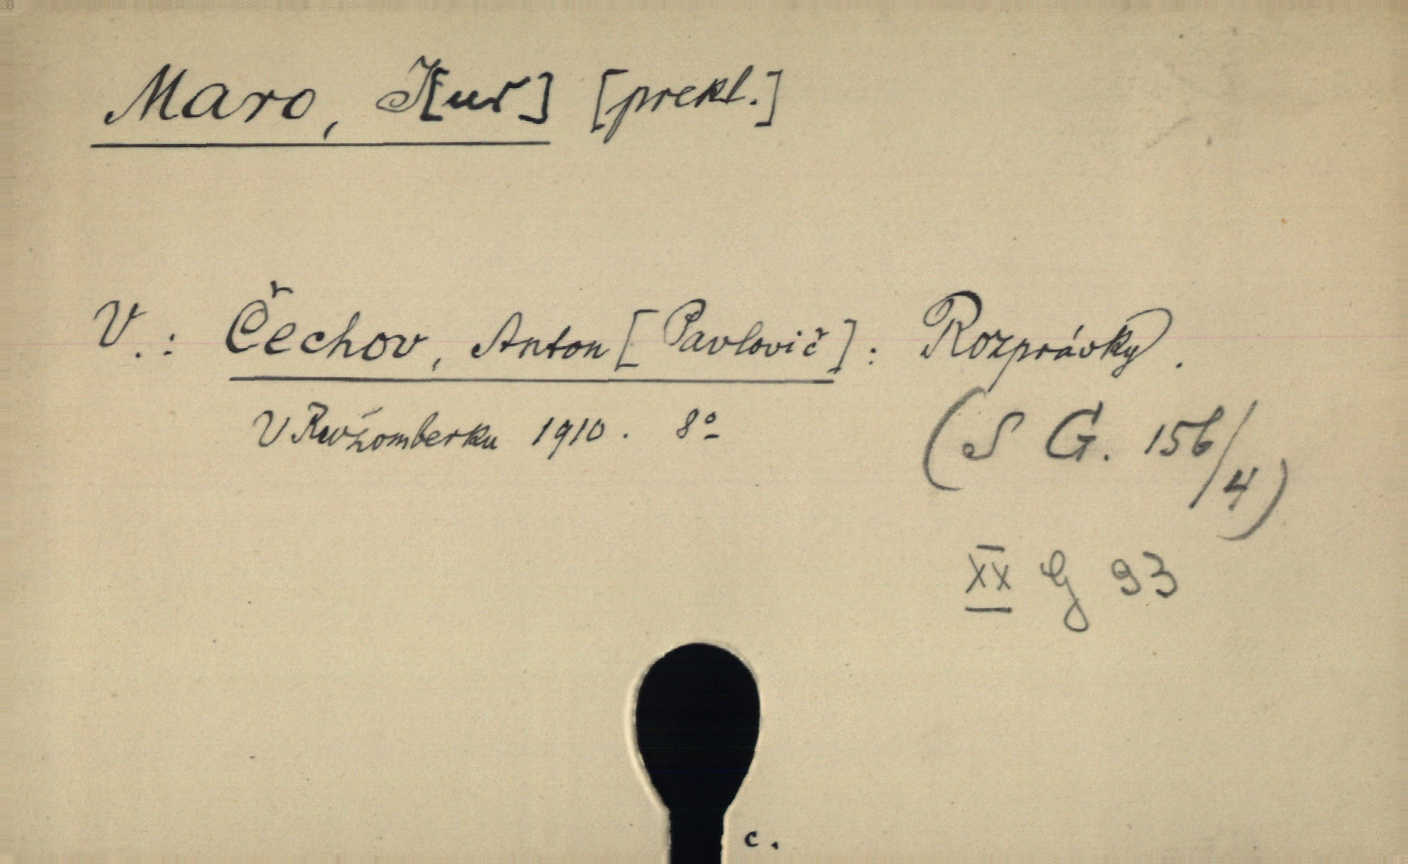 Maro, J[ur] [prekl.]
V.: Čechov, Anton [Pavlovič]: Rozprávky.
V Ružomberku 1910. 8°
(S G. 156/4)
XX G 93
c.